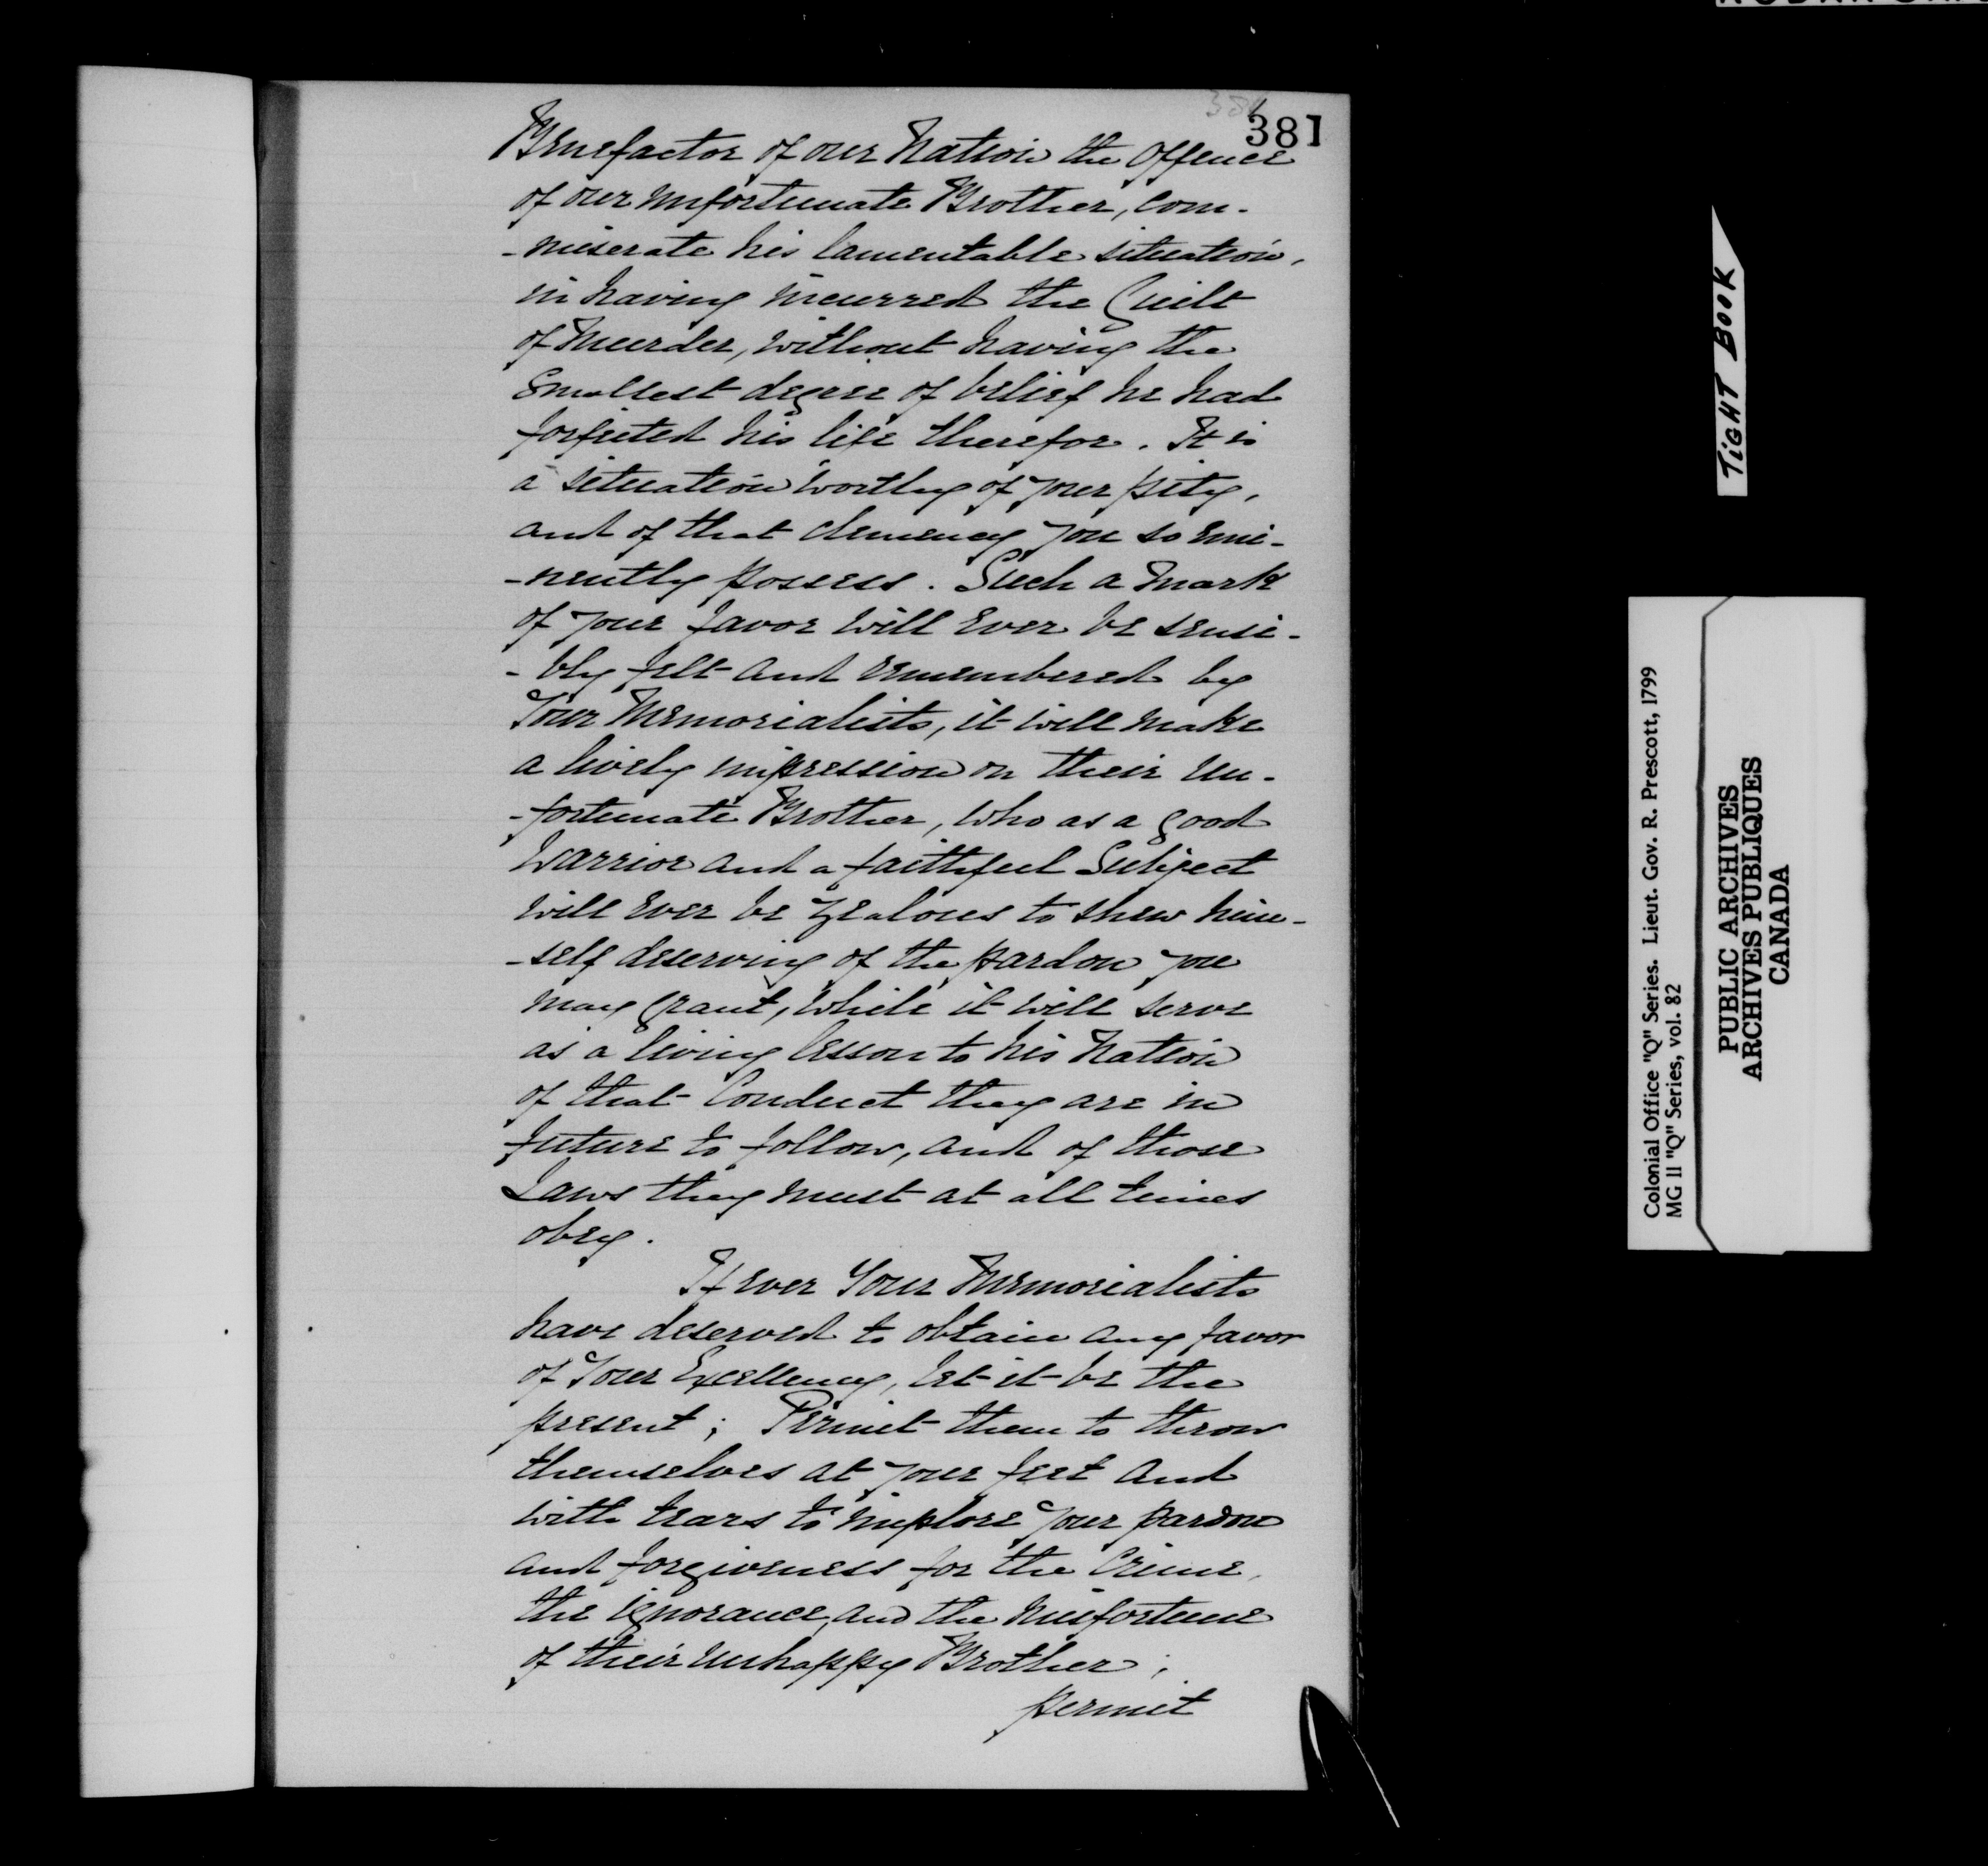 381
Benefactor of our Nation the Offence
of our unfortunate Brother, com-
-miserate his lamentable situation,
in having incurred the Guilt
of Murder, without having the
Smallest degree of belief he had
forfeited his life therefor. It is
a situation worthy of your pity,
and of that clemency you so emi-
-nently possess. Such a mark
of your favor will ever be sensi-
-bly felt and remembered by
Your Memorialists, it will make
a lively impression on their un-
-fortunate Brother, who as a good
Warrior and a faithful Subject
will ever be zealous to shew him-
-self deserving of the pardon you
may grant, while it will serve
as a living lesson to his Nation
of that Conduct they are in
future to follow, and of those
Laws they must at all times
obey.
If ever Your Memorialists
have deserved to obtain any favor
of Your Excellency, let it be the
present; Permit them to throw
themselves at your feet and
with tears to implore your pardon
and forgiveness for the Crime,
the ignorance, and the misfortune
of their unhappy Brother;
permit
TIGHT BOOK
Colonial Office "Q" Series. Lieut. Gov. R. Prescott, 1799
MG 11 "Q" Series, vol. 82
PUBLIC ARCHIVES
ARCHIVES PUBLIQUES
CANADA